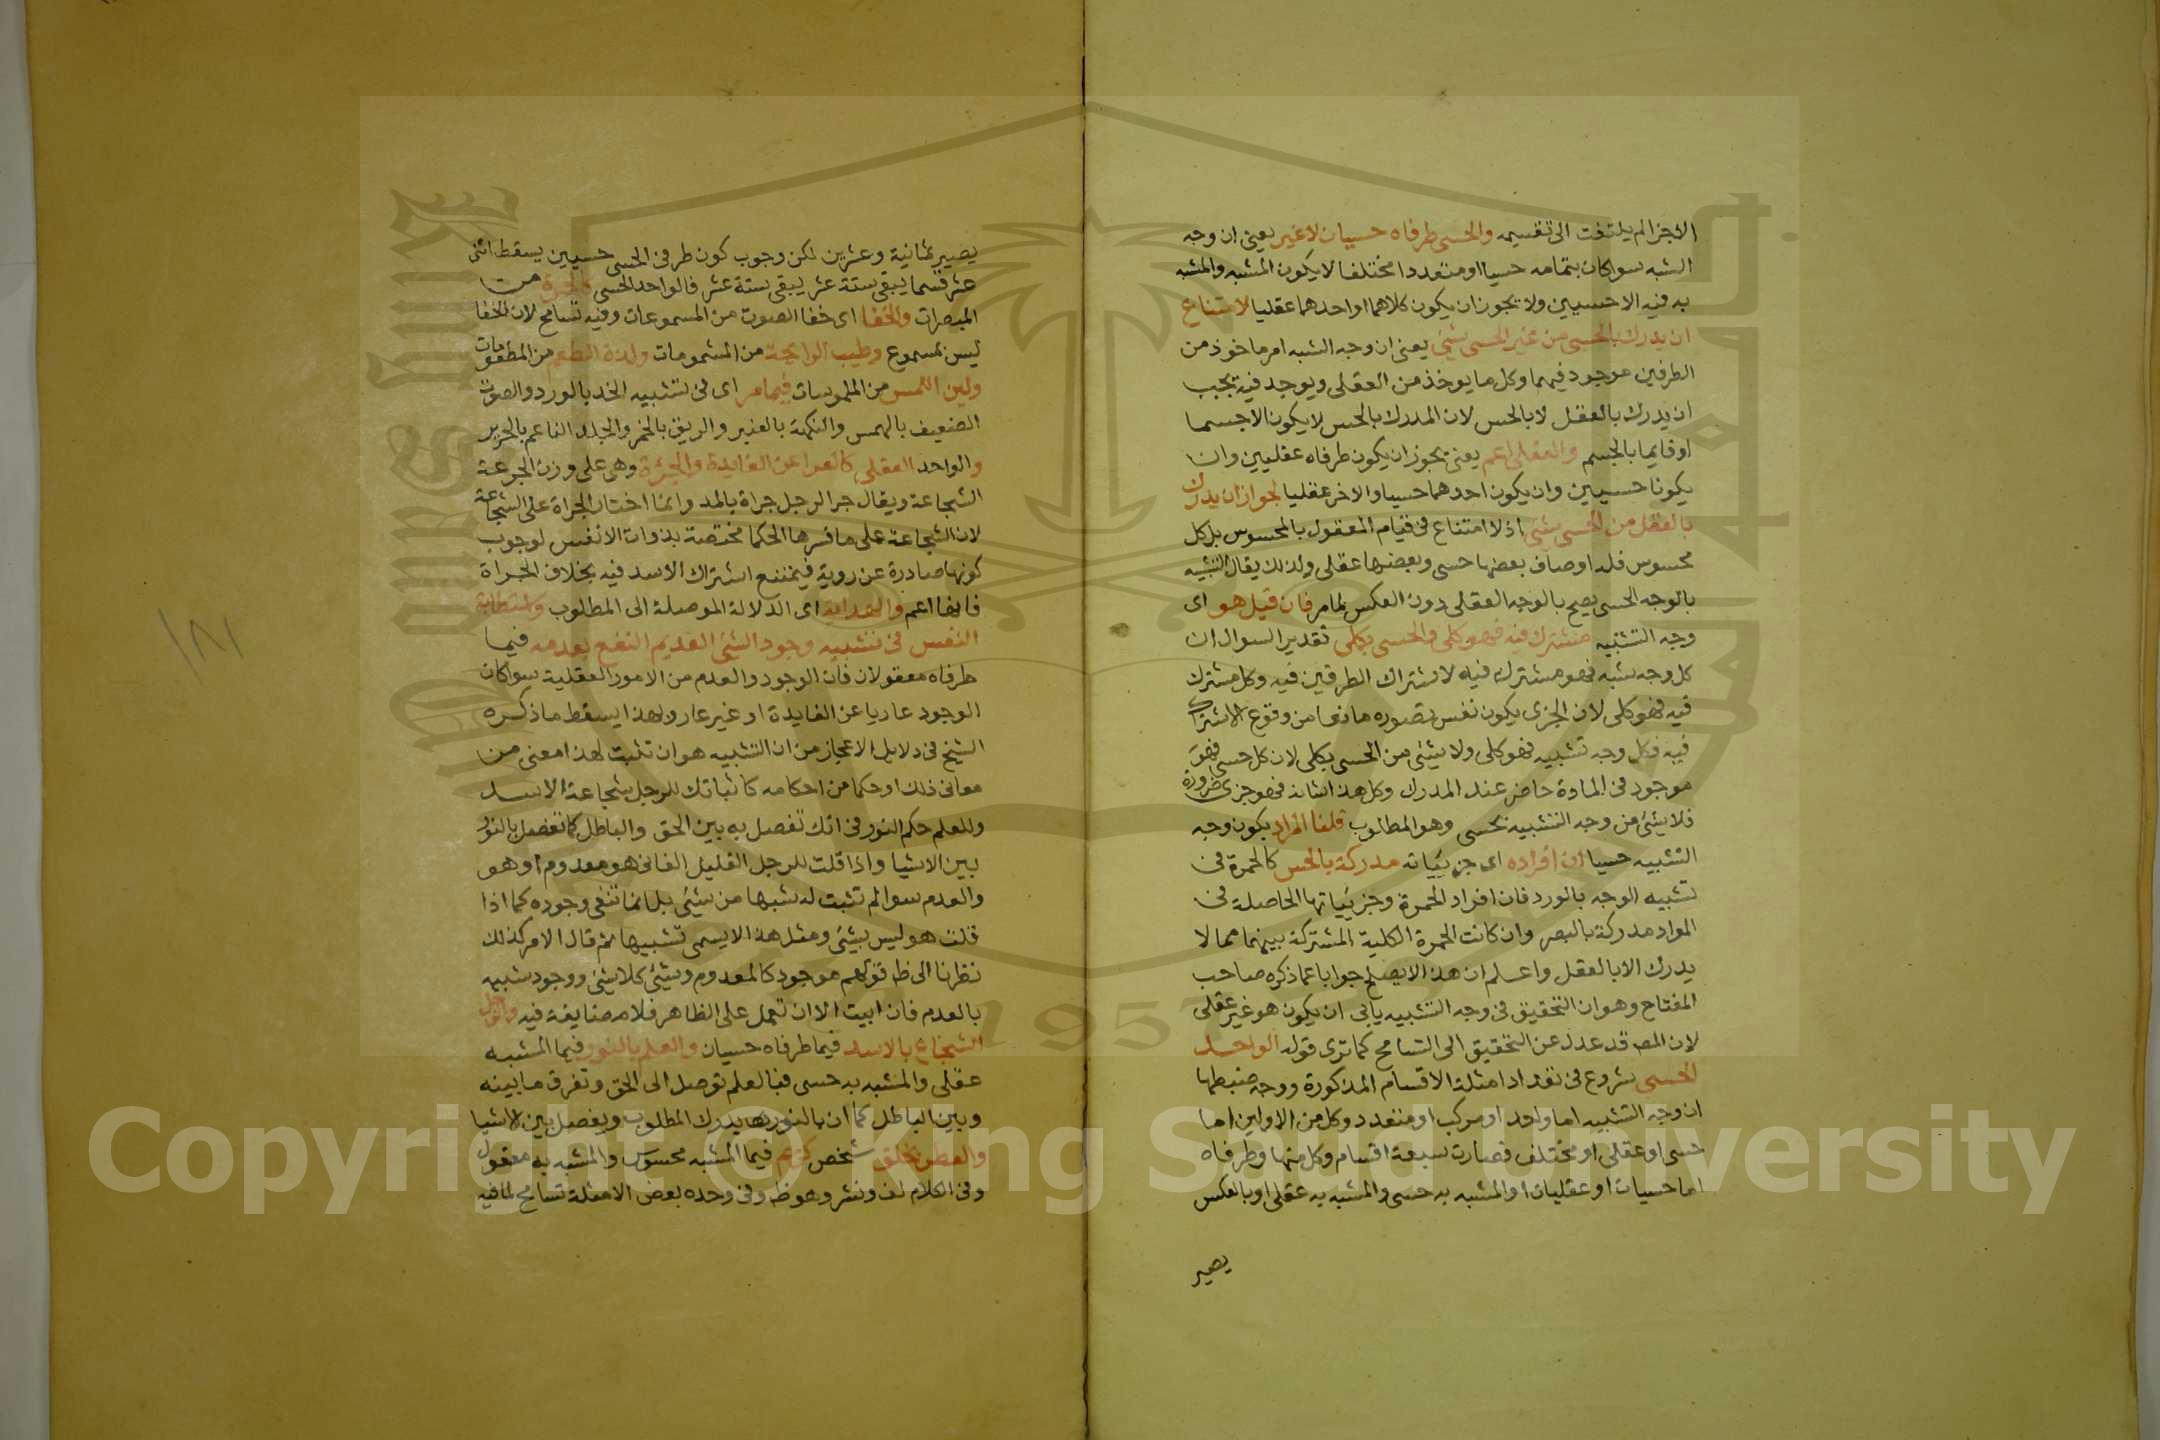 الاجزا لم يلتفت الى تقسيمه والحسى طرفاه حسيان لاغير يعنى ان وجه
الشبه سوا كان بتمامه حسيا او متعددا مختلفا لا يكون المشبه والمشبه
به فيه الا حسيين ولا يجوز ان يكون كلاهما او احدهما عقليا لامتناع
ان يدرك بالحسى من غير الحسى شيئ يعنى ان وجه الشبه امر ماخوذ من
الطرفين موجود فيهما وكل ما يوخذ من العقلى ويوجد فيه يجب
ان يدرك بالعقل لا بالحس لان المدرك بالحس لا يكون الا جسما
او قايما بالجسم والعقلى اعم يعنى يجوز ان يكون طرفاه عقليين وان
يكونا حسيين وان يكون احدهما حسيا والاخر عقليا لجواز ان يدرك
بالعقل من الحسى شيئ اذ لا امتناع فى قيام المعقول بالمحسوس بل كل
محسوس فله اوصاف بعضها حسى وبعضها عقلى ولذلك يقال التشبيه
بالوجه الحسى يصح بالوجه العقلى دون العكس لما مر فان قيل هو اى
وجه التشبيه مشترك فيه فهو كلى والحسى بكلى تقدير السوال ان
كل وجه شبه فهو مشترك فيه لاشتراك الطرفين فيه وكل مشترك
فيه فهو كلى لان الجزى يكون نفس تصوره مانعا من وقوع الاشتراك
فيه فكل وجه تشبيه فهو كلى ولا شيئ من الحسى بكلى لان كل حسى فهو
موجود فى المادة حاضر عند المدرك وكل هذا شانه فهو جزى ضرورة
فلا شيئ من وجه التشبيه بحسى وهو المطلوب قلنا المراد بكون وجه
التشبيه حسيا ان افراده اى جزيياته مدركة بالحس كالحمرة فى
تشبيه الوجه بالورد فان افراد الحمرة وجزيياتها الحاصلة فى
المواد مدركة بالبصر وان كانت الحمرة الكلية المشتركة بينهما مما لا
يدرك الا بالعقل واعلم ان هذا لا يصلح جوابا عما ذكره صاحب
المفتاح وهو ان التحقيق فى وجه التشبيه يابى ان يكون هو غير عقلى
لان المص قد عدل عن التحقيق الى التسامح كما ترى قوله الواحد
الحسى شروع فى تعداد امثلة الاقسام المذكورة ووجه ضبطها
ان وجه التشبيه اما واحد او مركب او متعدد وكل من الاولين اما
حسى او عقلى او مختلف فصارت سبعة اقسام وكل منها وطرفاه
اما حسيان او عقليان او المشبه به حسى والمشبه به عقلى او بالعكس
يصير
يصير ثمانية وعشرين لكن وجوب كون طرفى الحسى حسيين يسقط اثنى
عشر قسما يبقى ستة عشر يبقى ستة عشر فالواحد الحسى كالحمرة من
المبصرات والخفا اى خفا الصوت من المسموعات وفيه تسامح لان الخفا
ليس بمسموع وطيب الرايحة من المشمومات ولذة الطعم من المطعومات
ولين اللمس من الملموسات فيما مر اى فى تشبيه الخد بالورد والصوت
الضعيف بالهمس والنكهة بالعنبر والريق بالخمر والجلد الناعم بالحرير
والواحد العقلى كالعرا عن الفايدة والجرءة وهى على وزن الجرعة
الشجاعة ويقال جرا الرجل جراة بالمد وانما اختار الجراة على الشجاعة
لان الشجاعة على ما فسرها الحكما مختصة بذوات الانفس لوجوب
كونها صادرة عن روية فيمتنع اشتراك الاسد فيه بخلاف الجراة
فانها اعم والهداية اى الدلالة الموصلة الى المطلوب واستطابة
النفس فى تشبيه وجود الشيئ العديم النفع بعدمه فيما
طرفاه معقولان فان الوجود والعدم من الامور العقلية سوا كان
الوجود عاريا عن الفايدة او غير عار وبهذا يسقط ما ذكره
الشيخ فى دلايل الاعجاز من ان التشبيه هو ان تثبت لهذا معنى من
معانى ذلك او حكما من احكامه كاثباتك للرجل شجاعة الاسد
وللعلم حكم النور فى انك تفصل به بين الحق والباطل كما تفصل بالنور
بين الاشيا واذا قلت للرجل القليل الفانى هو معدوم او هو
والعدم سوا لم تثبت له شبها من شيئ بل انما تنفى وجوده كما اذا
قلت هو ليس بشيئ ومثل هذا لا يسمى تشبيها ثم قال الامر كذلك
نظرنا الى ظ قولهم موجود كالمعدوم وشيئ كلا شيئ ووجود شبيه
بالعدم فان ابيت الا ان تعمل على الظاهر فلا مضايقة فيه والرجل
الشجاع بالاسد فيما طرفاه حسيان والعلم بالنور فيما المشبه
عقلى والمشبه به حسى فبالعلم توصل الى الحق وتفرق ما بينه
وبين الباطل كما ان بالنور يدرك المطلوب ويفصل بين الاشيا
والعطر بخلق شخص كريم فيما المشبه محسوس والمشبه به معقول
وفى الكلام لف ونشر وهو ظ وفى وحده بعض الامثلة تسامح لما فيه
١٨١
Copyright © King Saud University
1957